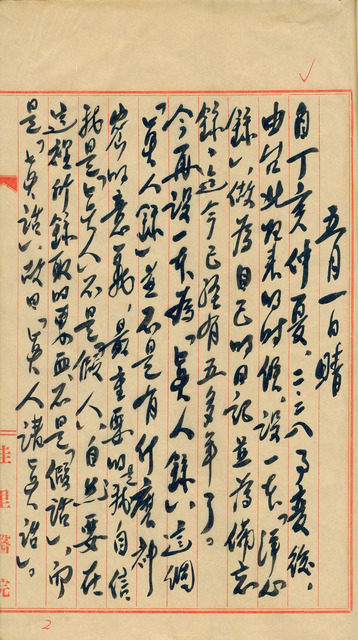 五月一日晴
自丁亥仲夏、二二八事變後、
由台北回来的时候、設一本「浮心
錄」、做為自己的日記並為備忘
錄、迄今已経有五多年了。
今再設一本為「真人錄」、這個
「真人錄」並不是有什麼神
密的意義、最重要的是我自信
我是「真人」不是「假人」、自然要在
這裡所錄取的東西不是「假話」、而
是「真話」、故曰「真人講真話」。
佳里醫院
2